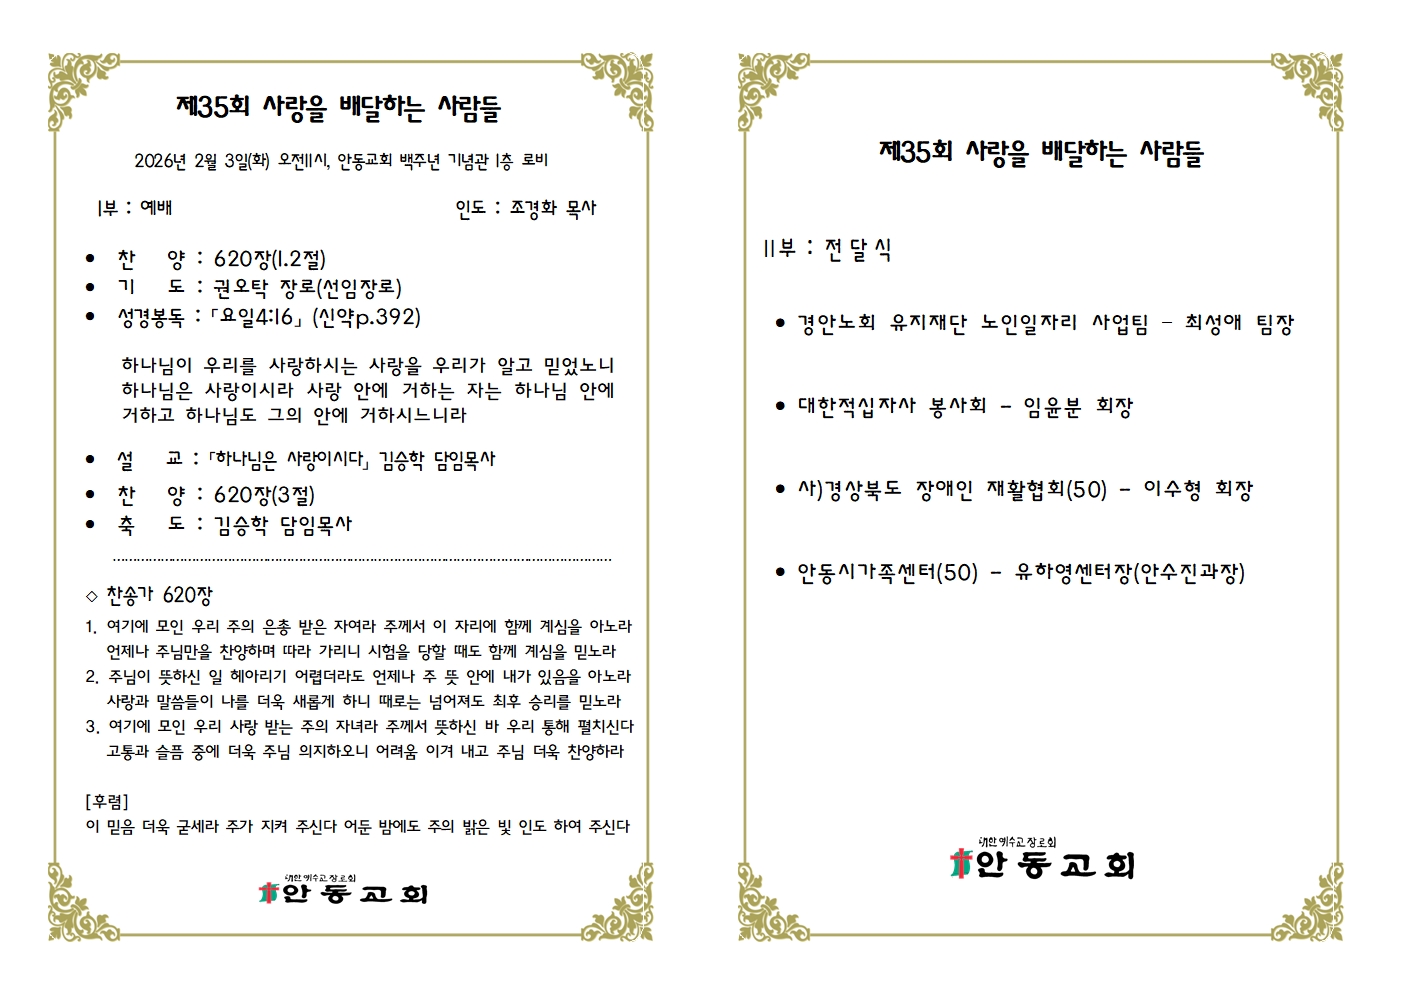 제35회 사랑을 배달하는 사람들
2026년 2월 3일(화) 오전11시, 안동교회 백주년 기념관 1층 로비
I부 : 예배 인도 : 조경화 목사
● 찬 양 : 620장(1.2절)
● 기 도 : 권오탁 장로(선임장로)
● 성경봉독 : 「요일4:16」 (신약p.392)
하나님이 우리를 사랑하시는 사랑을 우리가 알고 믿었노니
하나님은 사랑이시라 사랑 안에 거하는 자는 하나님 안에
거하고 하나님도 그의 안에 거하시느니라
● 설 교 : 「하나님은 사랑이시다」 김승학 담임목사
● 찬 양 : 620장(3절)
● 축 도 : 김승학 담임목사
◇ 찬송가 620장
1. 여기에 모인 우리 주의 은총 받은 자여라 주께서 이 자리에 함께 계심을 아노라
언제나 주님만을 찬양하며 따라 가리니 시험을 당할 때도 함께 계심을 믿노라
2. 주님이 뜻하신 일 헤아리기 어렵더라도 언제나 주 뜻 안에 내가 있음을 아노라
사랑과 말씀들이 나를 더욱 새롭게 하니 때로는 넘어져도 최후 승리를 믿노라
3. 여기에 모인 우리 사랑 받는 주의 자녀라 주께서 뜻하신 바 우리 통해 펼치신다
고통과 슬픔 중에 더욱 주님 의지하오니 어려움 이겨 내고 주님 더욱 찬양하라
[후렴]
이 믿음 더욱 굳세라 주가 지켜 주신다 어둔 밤에도 주의 밝은 빛 인도 하여 주신다
대한예수교장로회
안동교회
제35회 사랑을 배달하는 사람들
II부 : 전달식
● 경안노회 유지재단 노인일자리 사업팀 - 최성애 팀장
● 대한적십자사 봉사회 - 임윤분 회장
● 사)경상북도 장애인 재활협회(50) - 이수형 회장
● 안동시가족센터(50) - 유하영센터장(안수진과장)
대한예수교장로회
안동교회